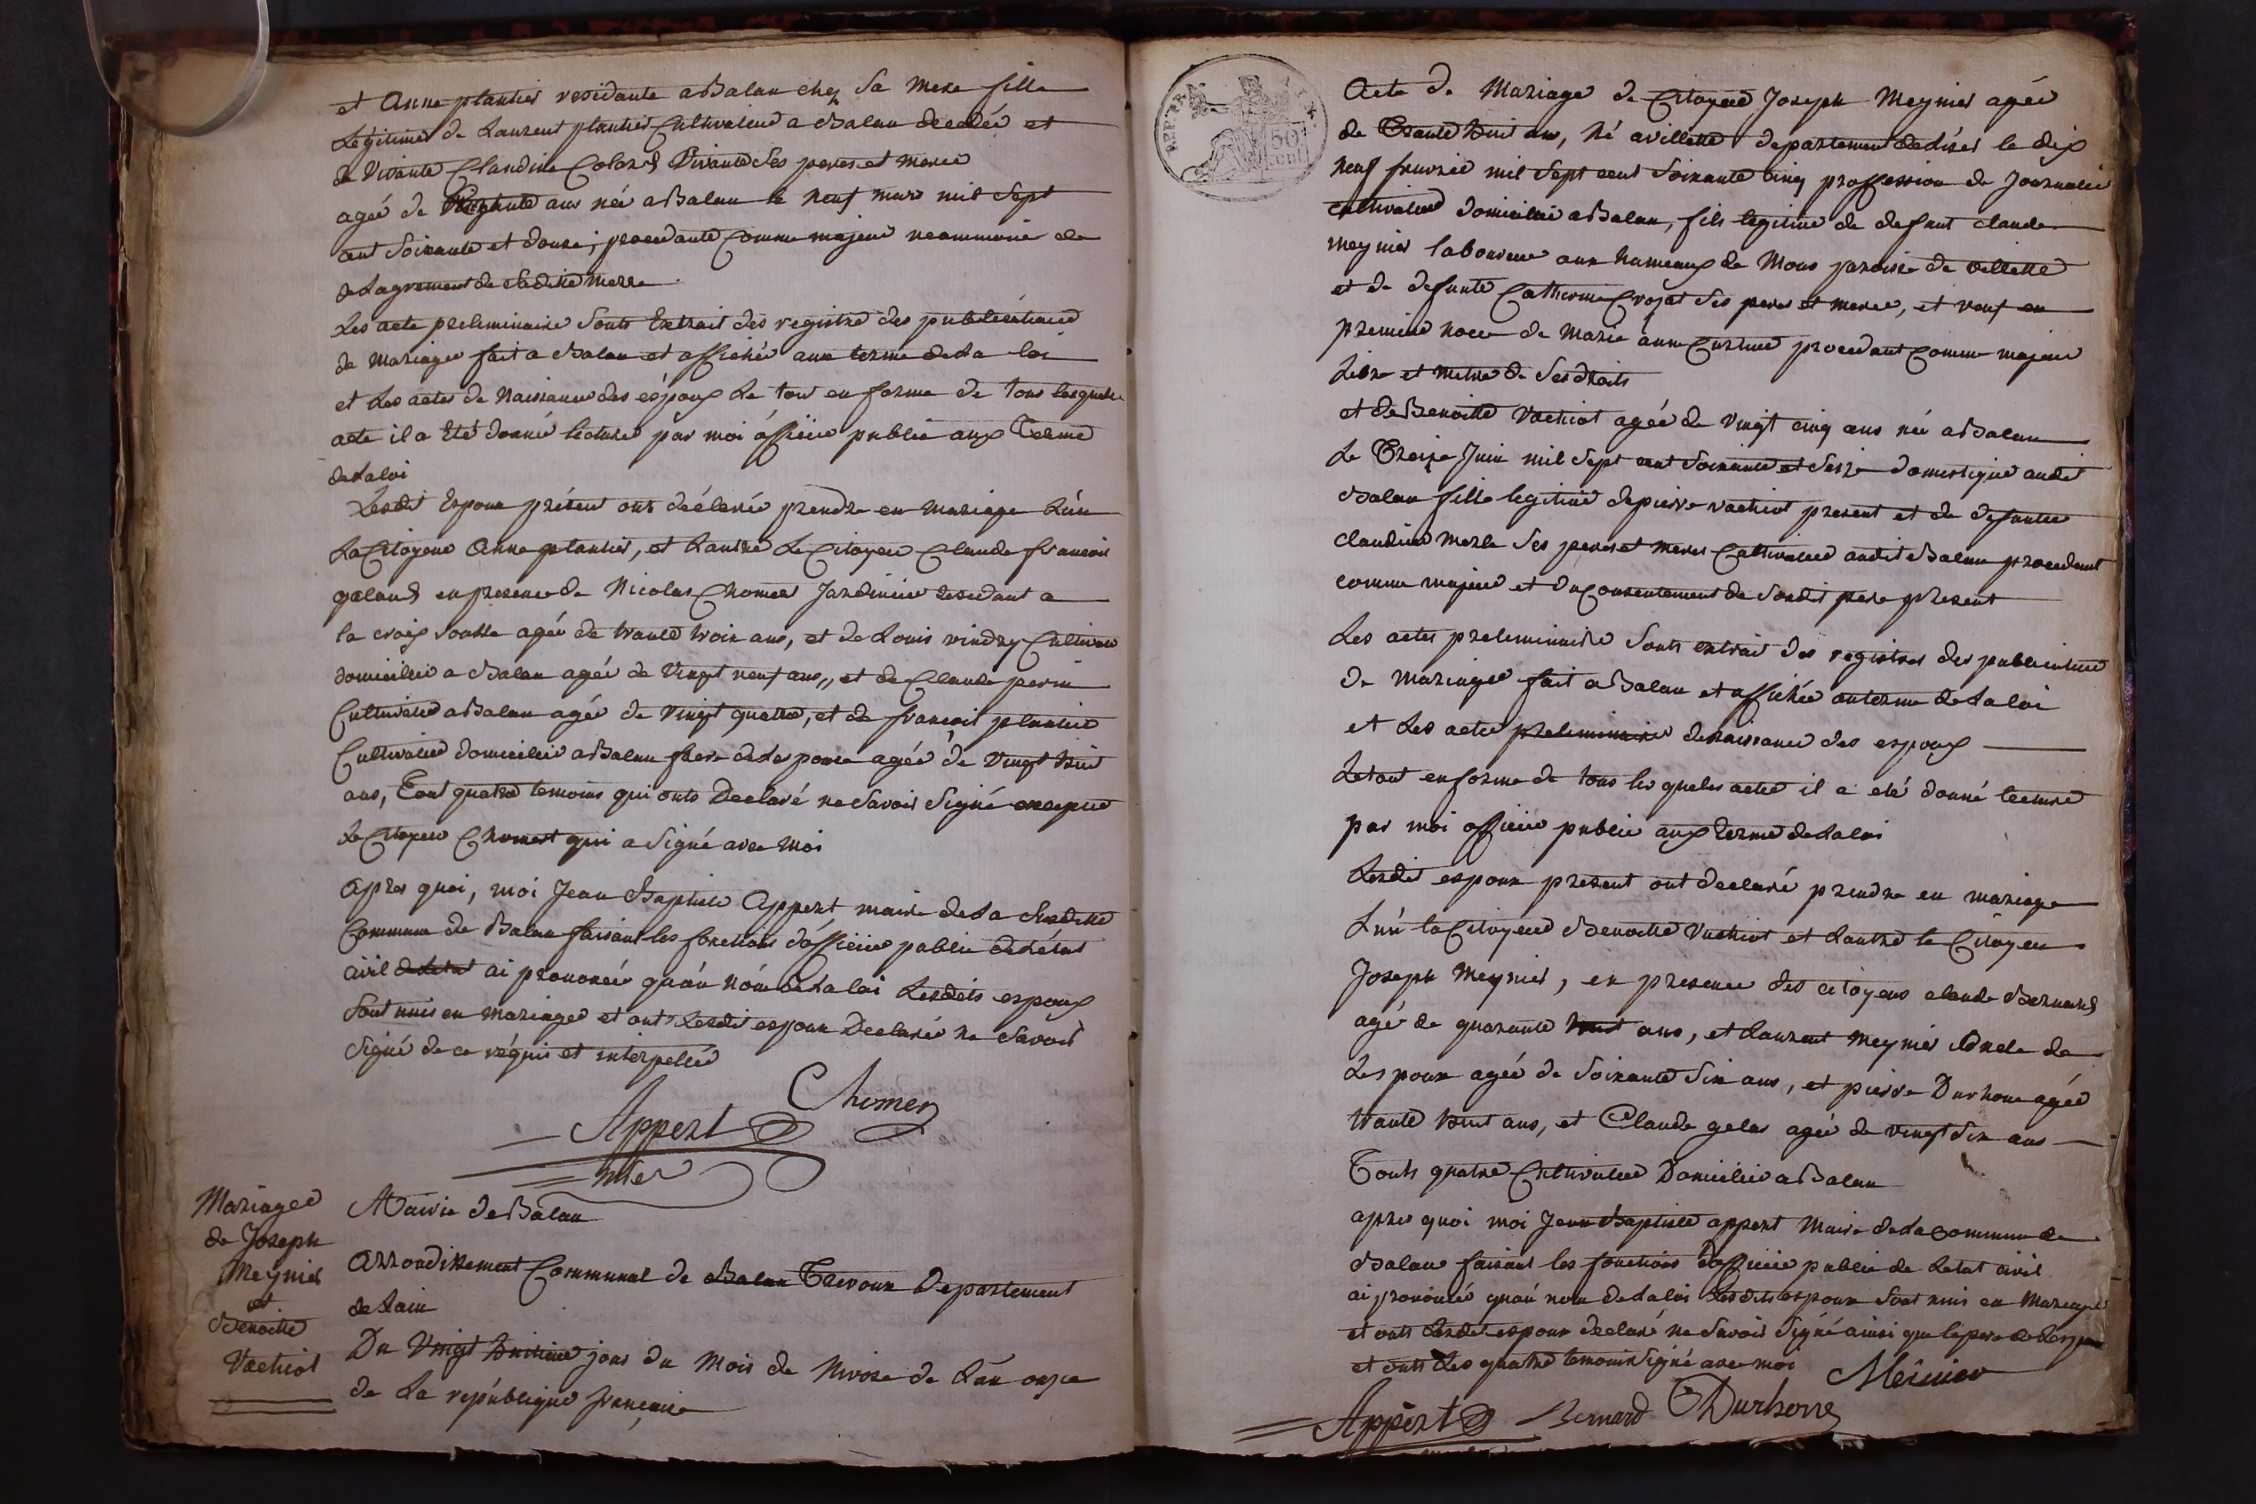 et Anne plantier residante a Balan chez Sa Mere fille
Légitime de Laurent plantier Cultivateur a Balan decedée et
de vivante Claudine Colond vivante Ses peres et meres
agée de trente ans née a Balan le neuf mars mil Sept
cent Soixante et douze; procedante Comme majeur neammoins de
de Lagrement de Saditte Merre
Les acte preleminaire Sonts Extrait des registre des publications
de Mariage fait a Balan et affichée aux terme de La loi
et Les actes de Naissance des époux Le tout en forme de tous lesquels
acte il a Eté donné lecture par moi officier public aux Terme
de La loi
Lesdit Epoux présent onts déclaré prendre en Mariage Lún
La Citoyene Anne plantier, et Lautre Le Citoyen Claude francois
galand en presence de Nicolas Chomer Jardinier residant a
la croix rousse agée de trante trois ans, et de Louis vindry Cultivateur
domicilié a Balan agée de Vingt neuf ans,, et de Claude perin
Cultivateur a Balan agée de Vingt quatre, et de francois plantier
Cultivateur domicilié a Balan frere de Lepouse agée de Vingt huit
ans, Tout quatre temoins qui onts Declaré ne Savoir Signé excepté
Le Citoyen Chomert qui a Signé avec Moi
Apres quoi, moi Jean Baptiste Appert maire de La Susditte
Commune de Balan faisant les fonctions dófficier public de Létat
civil de Letat ai prononcée quaú nóm de La loi Lesdits espoux
Sont unis en mariage et onts Lesdit espoux Declaré ne Savoir
Signé de ce réquis et interpellée
Chomer
Appert
Mariage
de Joseph
Meynier
et
Benoitte
Vachiot
Mairie de Balan
Arrondissement Communal de Balan Trevoux Departement
de Lain
Du Vingt huitieme jour du Mois de Nivose de Lán onze
de La république française
Acte de Mariage de Citoyen Joseph Meynier agée
de Trante huit ans, Né a villette departement de Lisere le dix
neuf fevrier mil Sept cent Soixante cinq proffession de Journalier
cultivateur domicilié a Balan, fils legitime de defunt claude
meynier laboureur aux hameaux de Mons paroisse de villette
et de defunte Catherine Crozat Ses peres et meres, et veuf en
premiere noce de Marie anne procedant Comme majeur
Libre et Maitre de Ses droits
et de Benoitte Vachiot agée de Vingt cinq ans née a Balan
Le Treize Juin mil Sept cent Soixante et Seize domestique audit
Balan fille legitime de pierre vachiot present et de defunte
claudine Merle Ses peres et meres Cultivateur audit Balan procedant
comme majeur et du Consentement de Sondit pere present
Les actes preleminaire Sonts extrait des registres des publications
de Mariage fait a Balan et affichée au terme de La loi
et Les actes preleminaire de Naissance des espoux
Le tout en forme de tous les quels actes il a eté donné lecture
par moi officier public aux terme de La loi
Lesdit espoux present ont declaré prendre en mariage
Lún la Citoyene Benoitte Vachiot et Lautre le Citoyen
Joseph Meynier, en presence des citoyens claude Bernard
agé de quarante huit ans, et Laurent Meynier oncle de
Lespoux agée de Soixante Six ans, et pierre Durhone agée
trante huit ans, et Claude gelas agée de vingt Six ans
Touts quatre Cultivateur Domicilié a Balan
apres quoi moi Jean Baptiste appert Maire de La commune de
Balan faisant les fonctions dofficier public de Letat civil
ai prononcé quaú nom de La loi Lesdits espoux Sont unis en Mariage
et onts Lesdit espoux declaré ne Savoir Signé ainsi que le pere de Lespouse
et onts Les quatre temoins Signé avec moi
Meinier
Appert Bernard Durhone